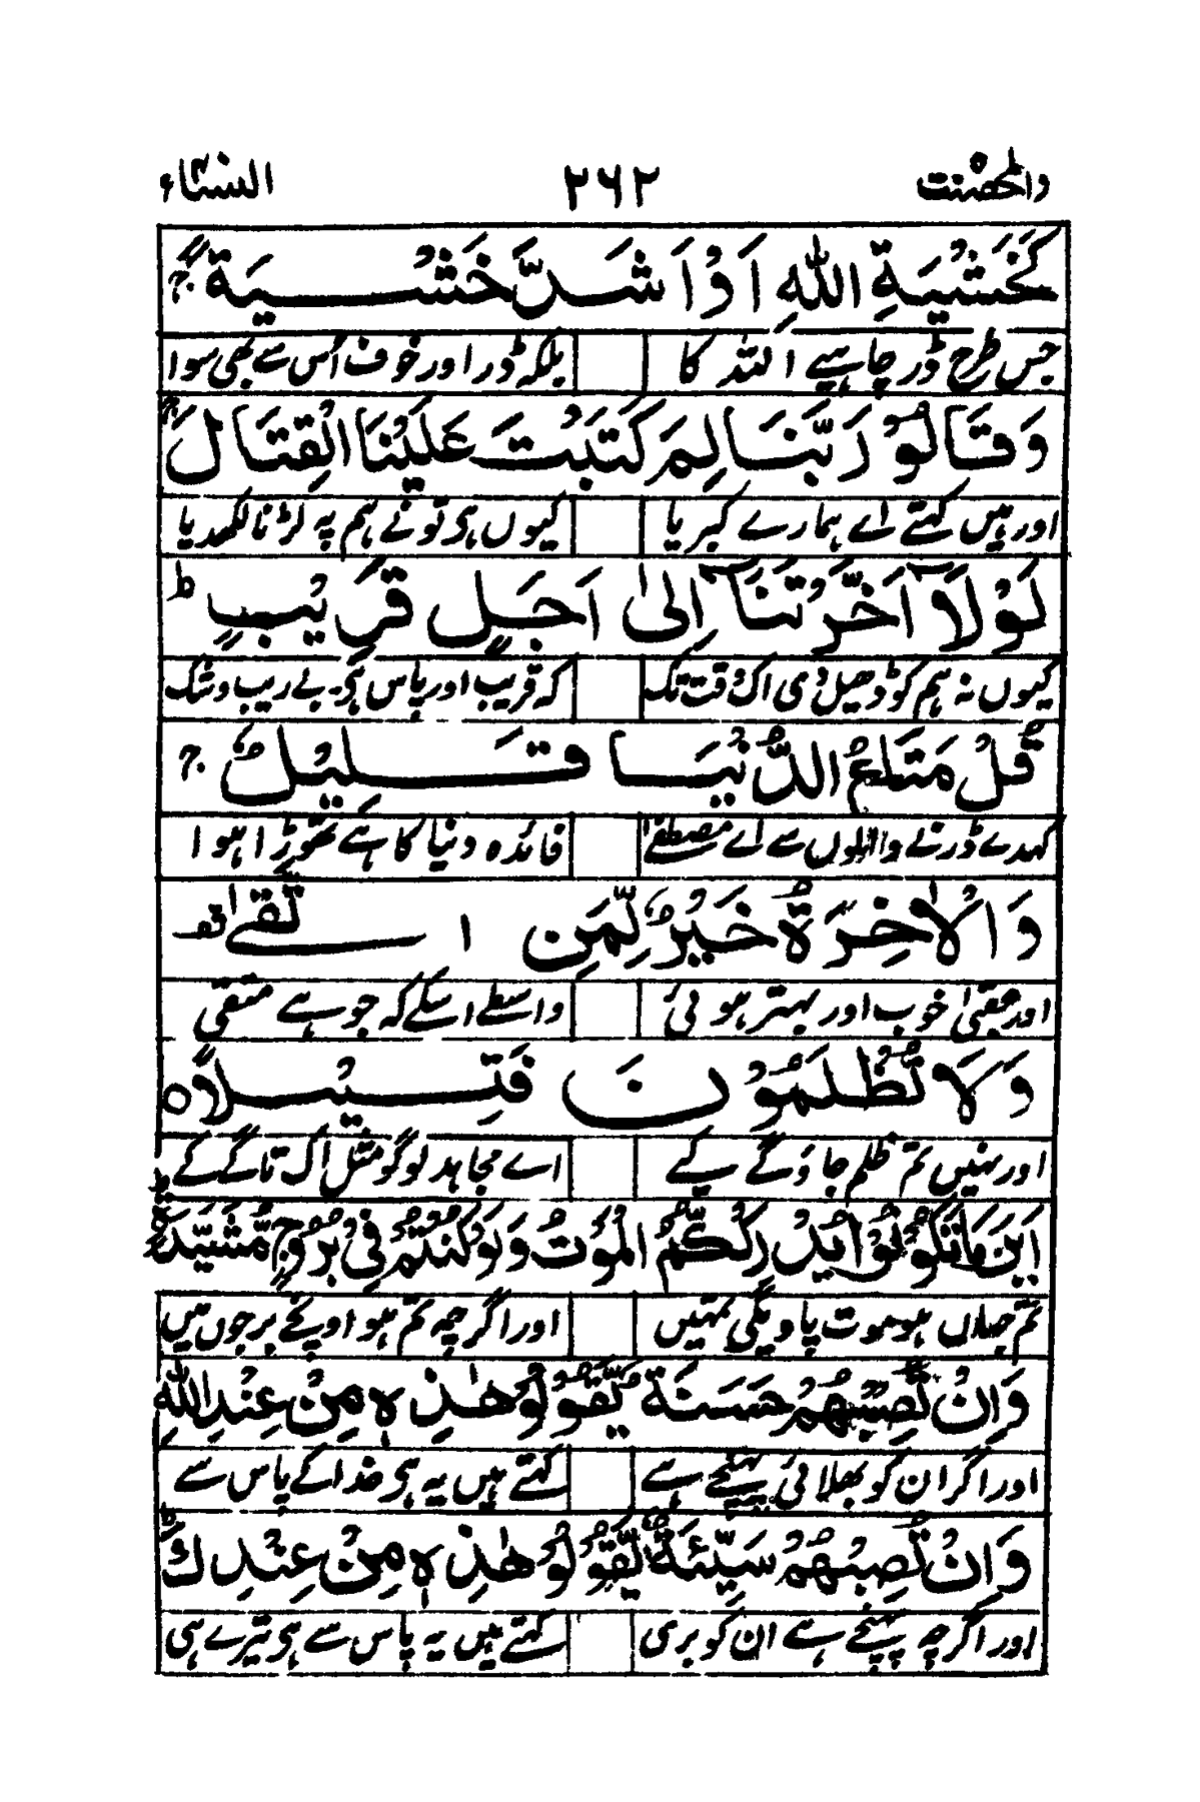 والمحصنت ٢٦٢ النساء
كَخَشْيَةِ اللّٰهِ اَوْ اَشَدَّ خَشْيَةً ۚ
جس طرح ڈر چاہیے اللہ کا بلکہ ڈر اور خوف اُس سے بھی سوا
وَقَالُوْا رَبَّنَا لِمَ كَتَبْتَ عَلَيْنَا الْقِتَالَ ۚ
اور ہیں کہتے اے ہمارے کبریا کیوں ہی تونے ہم پہ لڑنا لکھدیا
لَوْلَاۤ اَخَّرْتَنَاۤ اِلٰۤى اَجَلٍ قَرِيْبٍ ؕ
کیوں نہ ہم کو ڈھیل دی اک وقت تک کہ قریب اور پاس ہی بے ریب و شک
قُلْ مَتَاعُ الدُّنْيَا قَلِيْلٌ ۚ
کہدے ڈرنے والوں سے اے مصطفےٰ فائدہ دنیا کا ہے تھوڑا ہوا
وَالْاٰخِرَةُ خَيْرٌ لِّمَنِ اتَّقٰى قف
اور عقبیٰ خوب اور بہتر ہوئی واسطے اسکے کہ جو ہے متقی
وَلَا تُظْلَمُوْنَ فَتِيْلًا ○
اور نہیں تم ظلم جاؤگے کیے اے مجاہد لوگو مثل اک تاگے کے
اَيْنَ مَا تَكُوْنُوْا يُدْرِكْكُّمُ الْمَوْتُ وَلَوْ كُنْتُمْ فِيْ بُرُوْجٍ مُّشَيَّدَةٍ ؕ
تم جہاں ہو موت پاویگی تمہیں اور اگرچہ تم ہو اونچے برجوں میں
وَاِنْ تُصِبْهُمْ حَسَنَةٌ يَّقُوْلُوْا هٰذِهٖ مِنْ عِنْدِ اللّٰهِ
اور اگر ان کو بھلائی پہنچے ہے کہتے ہیں یہ ہی خدا کے پاس سے
وَاِنْ تُصِبْهُمْ سَيِّئَةٌ يَّقُوْلُوْا هٰذِهٖ مِنْ عِنْدِكَ ؕ
اور اگرچہ پہنچے ہے ان کو بری کہتے ہیں یہ پاس سے ہی تیرے ہی